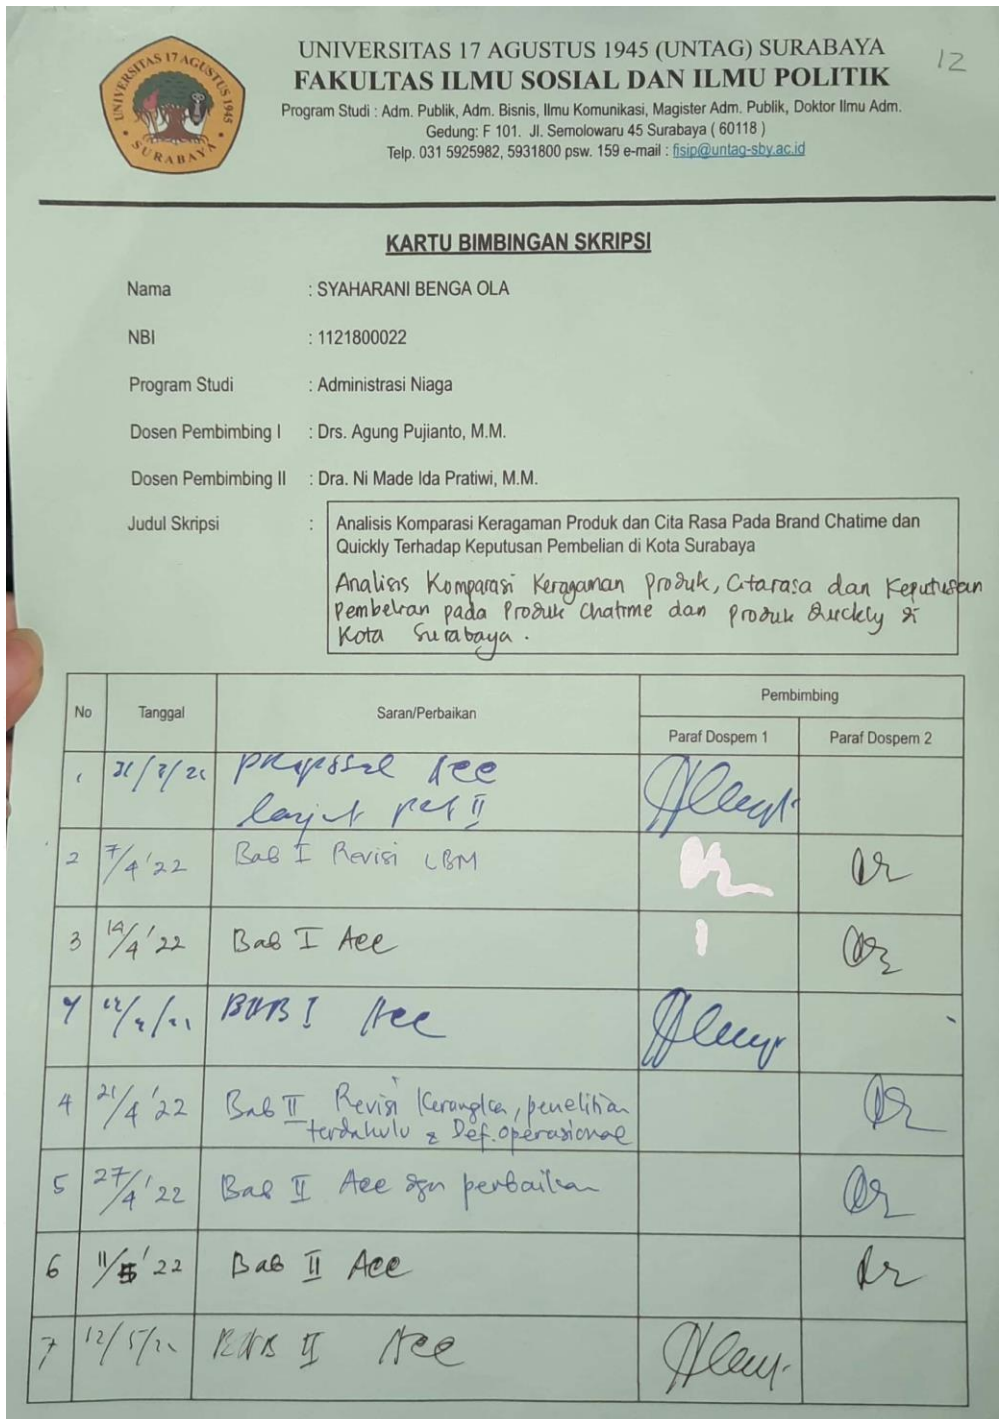 UNIVERSITAS 17 AGUSTUS 1945
SURABAYA
UNIVERSITAS 17 AGUSTUS 1945 (UNTAG) SURABAYA
12
FAKULTAS ILMU SOSIAL DAN ILMU POLITIK
Program Studi : Adm. Publik, Adm. Bisnis, Ilmu Komunikasi, Magister Adm. Publik, Doktor Ilmu Adm.
Gedung: F 101. Jl. Semolowaru 45 Surabaya ( 60118 )
Telp. 031 5925982, 5931800 psw. 159 e-mail : fisip@untag-sby.ac.id
KARTU BIMBINGAN SKRIPSI
Nama : SYAHARANI BENGA OLA
NBI : 1121800022
Program Studi : Administrasi Niaga
Dosen Pembimbing I : Drs. Agung Pujianto, M.M.
Dosen Pembimbing II : Dra. Ni Made Ida Pratiwi, M.M.
Judul Skripsi : Analisis Komparasi Keragaman Produk dan Cita Rasa Pada Brand Chatime dan
Quickly Terhadap Keputusan Pembelian di Kota Surabaya
Analisis Komparasi Keragaman Produk, Citarasa dan Keputusan
Pembelian pada Produk Chatime dan Produk Quickly di
Kota Surabaya.
No Tanggal Saran/Perbaikan Pembimbing
Paraf Dospem 1 Paraf Dospem 2
Proposal Acc
lanjut
2 7/4 '22 Bab I Revisi LBM
3 14/4 '22 Bab I Acc
4 BAB I Acc
4 21/4 '22 Bab II Revisi Kerangka, penelitian
terdahulu & Def. operasional
5 27/4 '22 Bab II Acc dgn perbaikan
6 11/5 '22 Bab II Acc
7 12/5/22 BAB II Acc